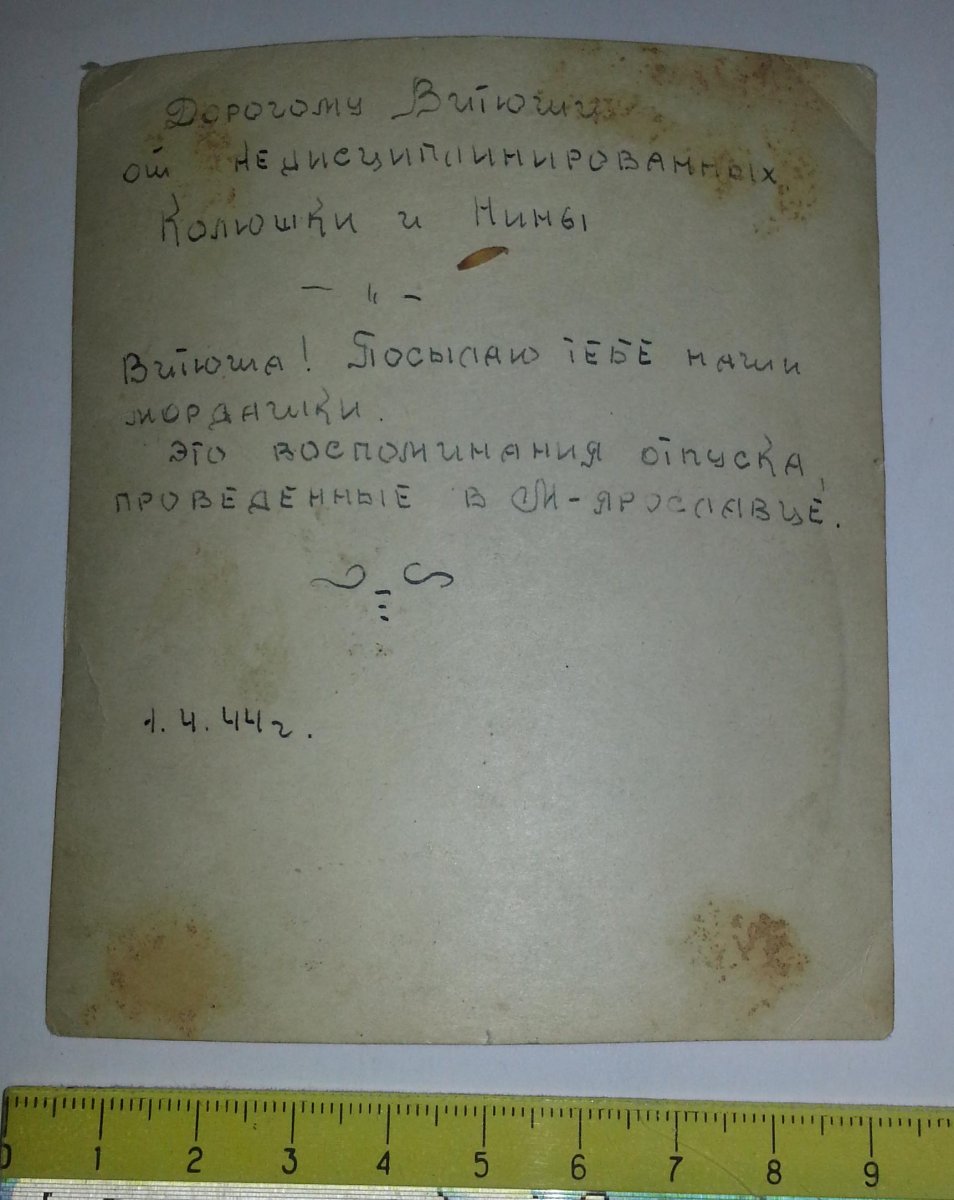 Дорогому Витюшу
от недисциплинированных
Колюшки и Нины
— " —
Витюша! Посылаю тебе наши
мордашки.
Это воспоминания отпуска,
проведенные в М-Ярославце.
1.4.44г.
0 1 2 3 4 5 6 7 8 9